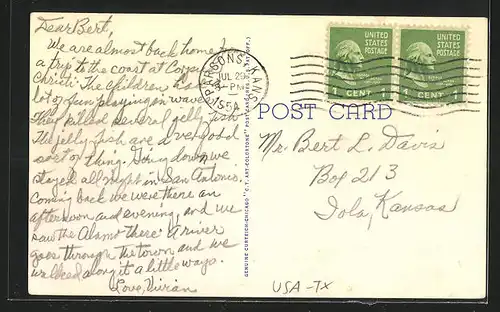 Dear Bert,
We are almost back home
a trip to the coast at Corpus
Christi. The children had
lot of fun playing in waves.
They killed several jelly fish.
The jelly fish are a very odd
sort of thing. Going down we
stayed all night in San Antonio.
Coming back we were there an
afternoon and evening, and we
saw the Alamo there. A river
goes through the town and we
walked along it a little ways.
Love, Vivian
PARSONS, KANS.
JUL 29
-PM
UNITED
STATES
POSTAGE
1 CENT 1
UNITED
STATES
POSTAGE
1 CENT 1
POST CARD
GENUINE CURTEICH-CHICAGO "C.T. ART-COLORTONE" POST CARD
Mr. Bert L. Davis
Box 213
Iola, Kansas
USA-TX